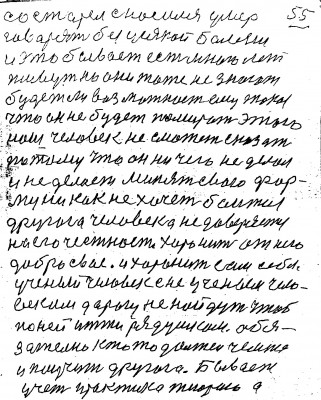 состарел сносился умер 55
говарят без всякой Балезни
и это бывает есть много лет
живут но они тоже не знают
будет ли возможность ему
что он не будет помират этого
наш человек не сможет сказат
потому что он ни чего не делал
и не делает
никак не хочет
другога человека не доверяет
на его честность. Хоронит от него
добро свае. и хоронит сам себя.
ученый человек с не ученым чело-
веком дарогу не найдут чтоб
по ней итти рядушком. обя-
зателно кто то должен чемто
и поучит другога. Бывает
учет практика а